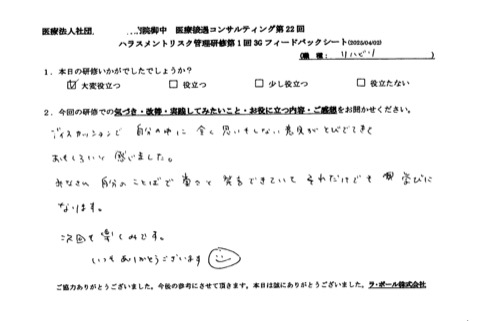 医療法人社団 院御中 医療接遇コンサルティング第22回
ハラスメントリスク管理研修第1回3Gフィードバックシート(2025/04/02)
(職種: リハビリ )
1．本日の研修いかがでしたでしょうか？
☑大変役立つ □役立つ □少し役立つ □役立たない
2．今回の研修での気づき・改善・実践してみたいこと・お役に立つ内容・ご感想をお聞かせください。
ディスカッションで 自分の中に 全く思いもしない意見がとびでてきて
おもしろいと 感じました。
みなさん 自分のことばで 堂々と 発言できていて それだけでも 学びに
なります。
次回も楽しみです。
いつもありがとうございます
ご協力ありがとうございました。今後の参考にさせて頂きます。本日は誠にありがとうございました。ラ・ポール株式会社